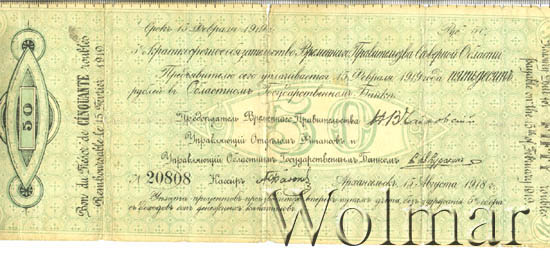 Срокъ 15 Февраля 1919 г.
Руб. 50.
5% Краткосрочное обязательство Временнаго Правительства Сѣверной Области
Предъявителю сего уплачивается 15 Февраля 1919 года пятьдесятъ
рублей въ Областномъ Государственномъ Банкѣ.
Предсѣдатель Временнаго Правительства Н В Чайковскій
Управляющій Отдѣломъ Финансовъ и
Управляющій Областнымъ Государственнымъ Банкомъ
№ 20808 Кассиръ
Архангельскъ, 15 Августа 1918 г.
Уплата процентовъ впередъ путемъ учета, безъ удержанія 5% сбора
съ доходовъ отъ денежныхъ капиталовъ
Bon du Trésor de CINQUANTE roubles
Remboursable le 15 Février 1919
50
50
FIFTY roubles
payable on the 15th of February 1919
Wolmar